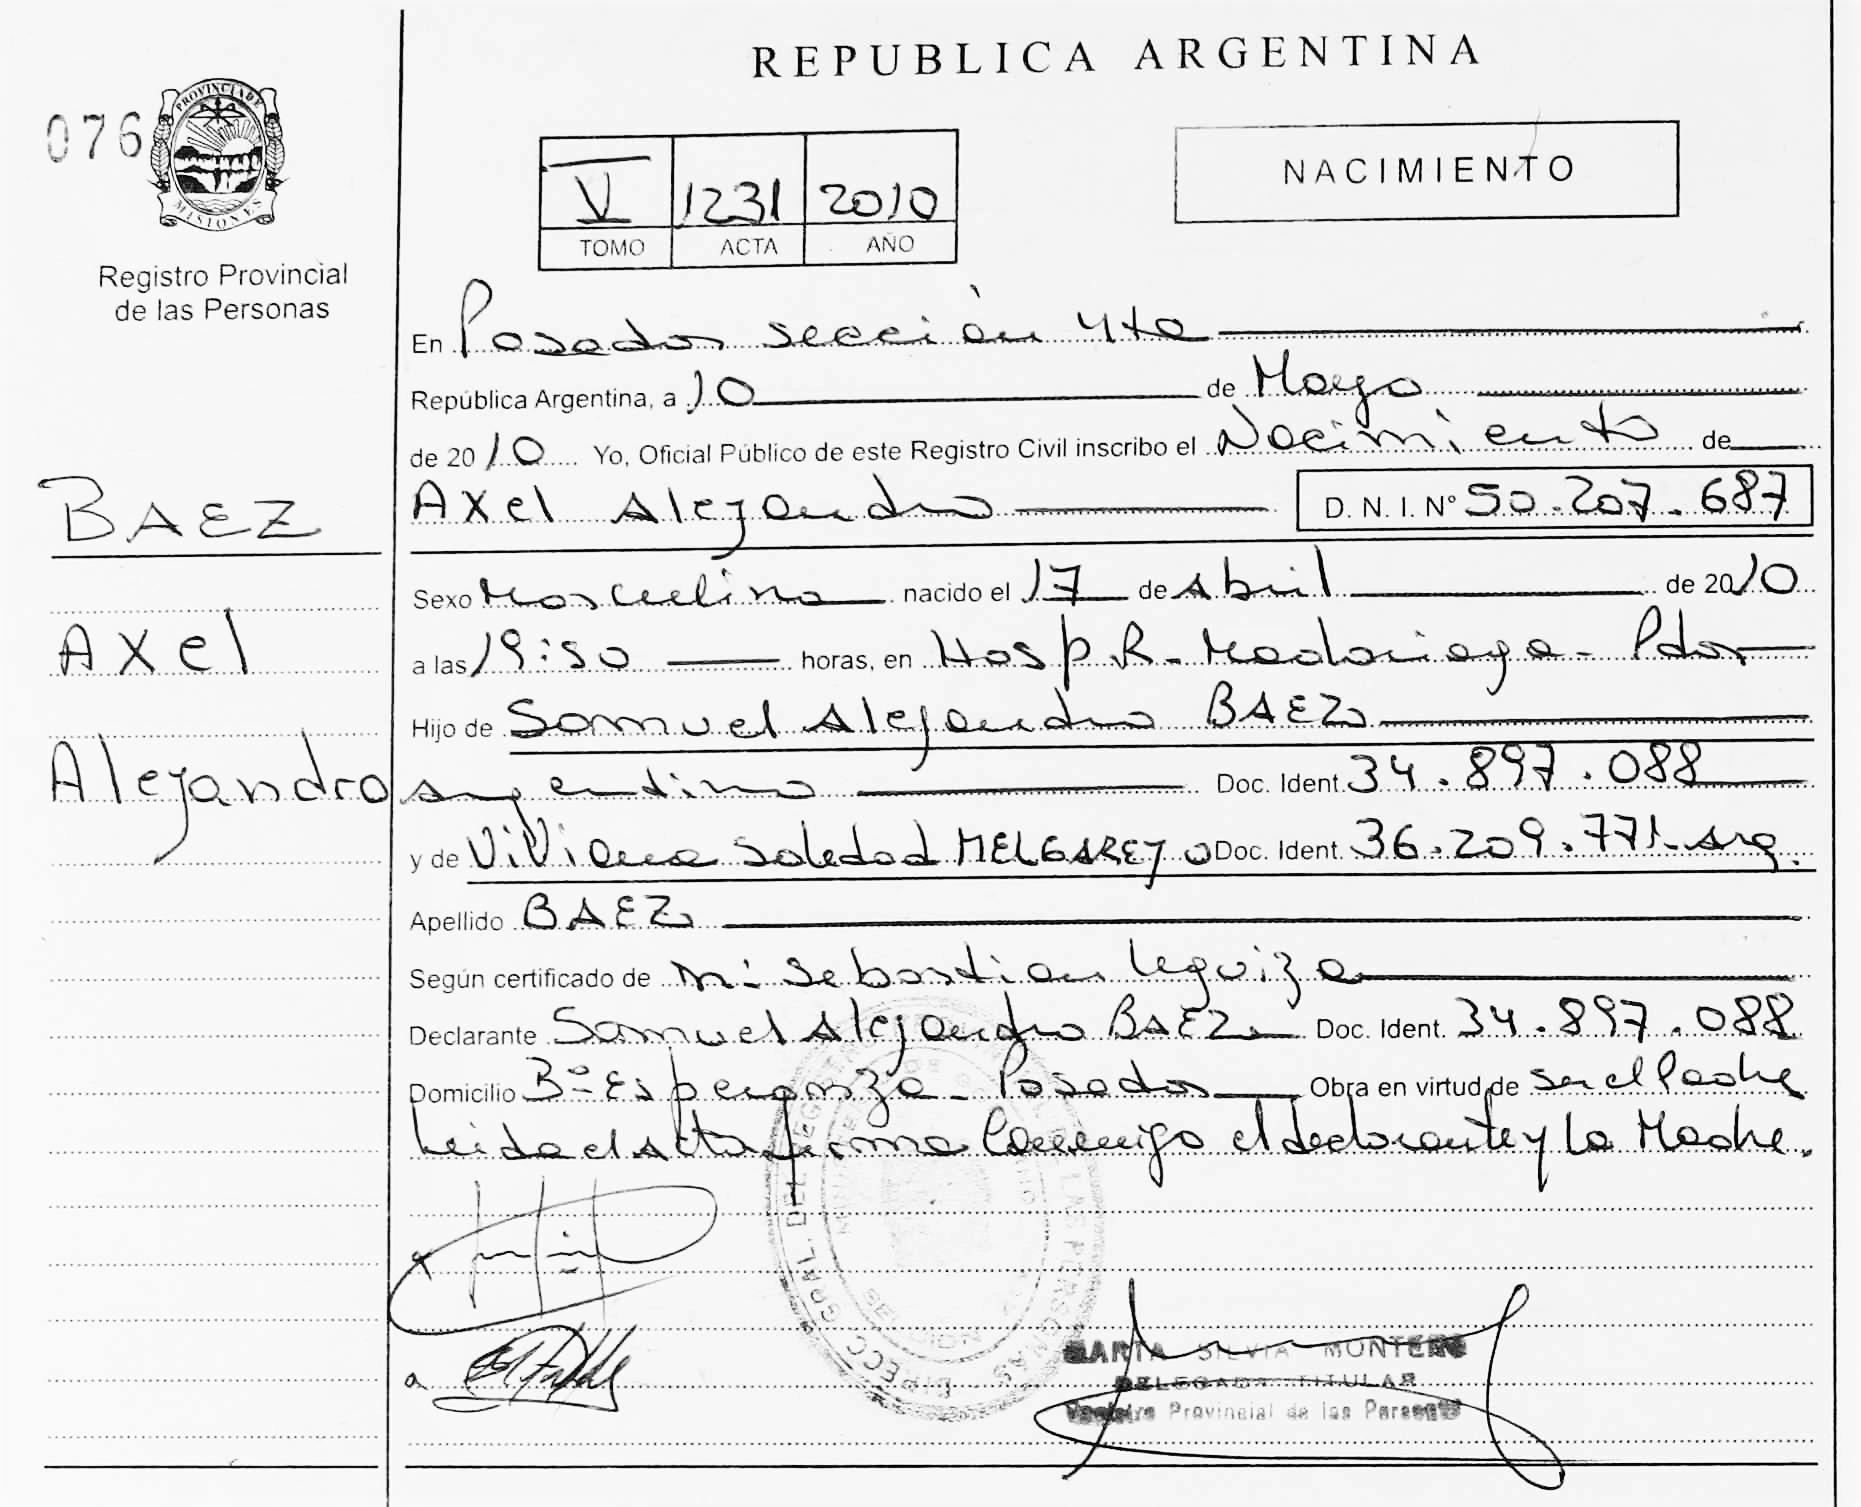 REPUBLICA ARGENTINA
076
PROVINCIA DE
MISIONES
Registro Provincial
de las Personas
NACIMIENTO
V 1231 2010
TOMO ACTA AÑO
En Posadas sección 4ta
República Argentina, a 10 de Mayo
de 2010 Yo, Oficial Público de este Registro Civil inscribo el Nacimiento de
BAEZ
Axel Alejandro D. N. I. Nº 50.207.687
Sexo Masculino nacido el 17 de Abril de 2010
Axel
a las 19:50 horas, en Hosp R. Madariaga - Pdas
Hijo de Samuel Alejandro BAEZ
Alejandro
Argentino Doc. Ident. 34.897.088
y de Viviana Soledad MELGAREJO Doc. Ident. 36.209.771 - Arg.
Apellido BAEZ
Según certificado de Sebastian Leguiza
Declarante Samuel Alejandro BAEZ Doc. Ident. 34.897.088
Domicilio Bº Esperanza - Posadas Obra en virtud de ser el Padre
Leida el Acta firma Conmigo el declarante y la Madre.
MARTA SILVIA MONTERO
DELEGADA TITULAR
Registro Provincial de las Personas